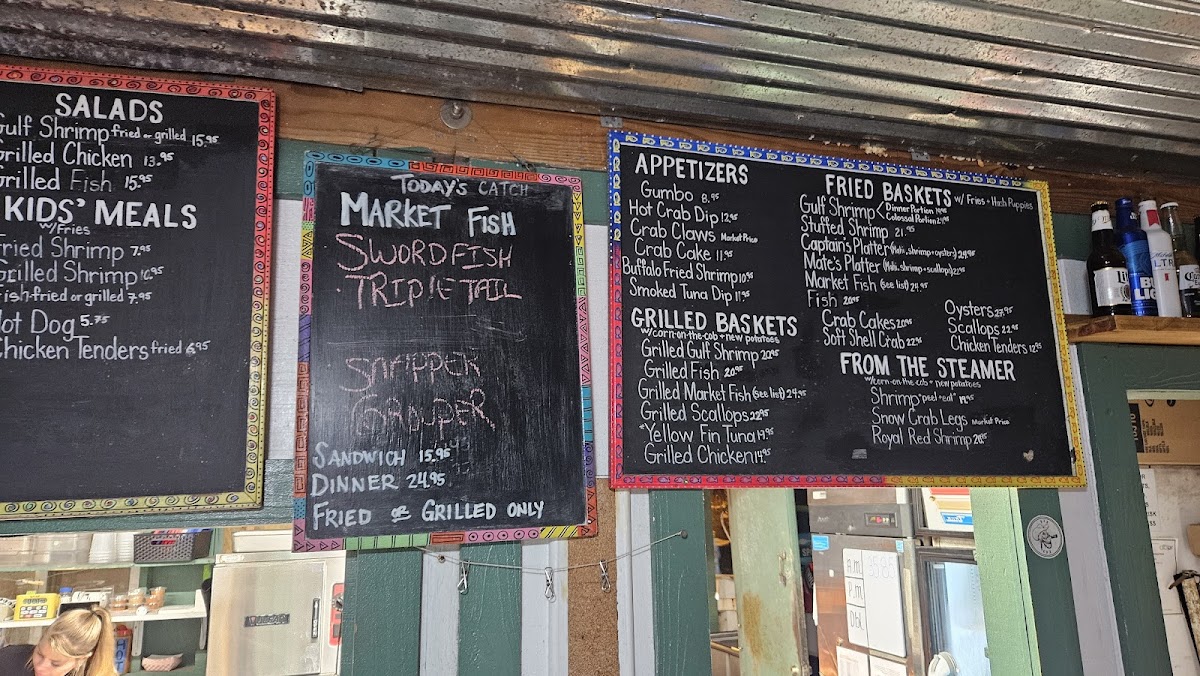 SALADS
Gulf Shrimp fried or grilled 15.95
Grilled Chicken 13.95
Grilled Fish 15.95
KIDS' MEALS
w/Fries
Fried Shrimp 7.95
Grilled Shrimp 10.95
Fish-fried or grilled 7.95
Hot Dog 5.75
Chicken Tenders fried 6.95
TODAY'S CATCH
MARKET FISH
SWORDFISH
TRIPLETAIL
SNAPPER
GROUPER
SANDWICH 15.95
DINNER 24.95
FRIED OR GRILLED ONLY
APPETIZERS
Gumbo 8.95
Hot Crab Dip 12.95
Crab Claws Market Price
Crab Cake 11.95
Buffalo Fried Shrimp 10.95
Smoked Tuna Dip 11.95
GRILLED BASKETS
w/corn-on-the-cob + new potatoes
Grilled Gulf Shrimp 20.95
Grilled Fish 20.95
Grilled Market Fish (see list) 24.95
Grilled Scallops 22.95
*Yellow Fin Tuna 19.95
Grilled Chicken 14.95
FRIED BASKETS w/ Fries + Hush Puppies
Gulf Shrimp < Dinner Portion
Colossal Portion
Stuffed Shrimp 21.95
Captain's Platter (fish, shrimp + oysters) 24.95
Mate's Platter (fish, shrimp + scallops) 22.95
Market Fish (see list) 24.95
Fish 20.95
Crab Cakes 20.95
Soft Shell Crab 22.95
Oysters 27.95
Scallops 22.95
Chicken Tenders 12.95
FROM THE STEAMER
w/corn-on-the-cob + new potatoes
Shrimp "peel + eat" 19.95
Snow Crab Legs Market Price
Royal Red Shrimp
BUD LIGHT
ULTRA
A.M.
P.M.
35